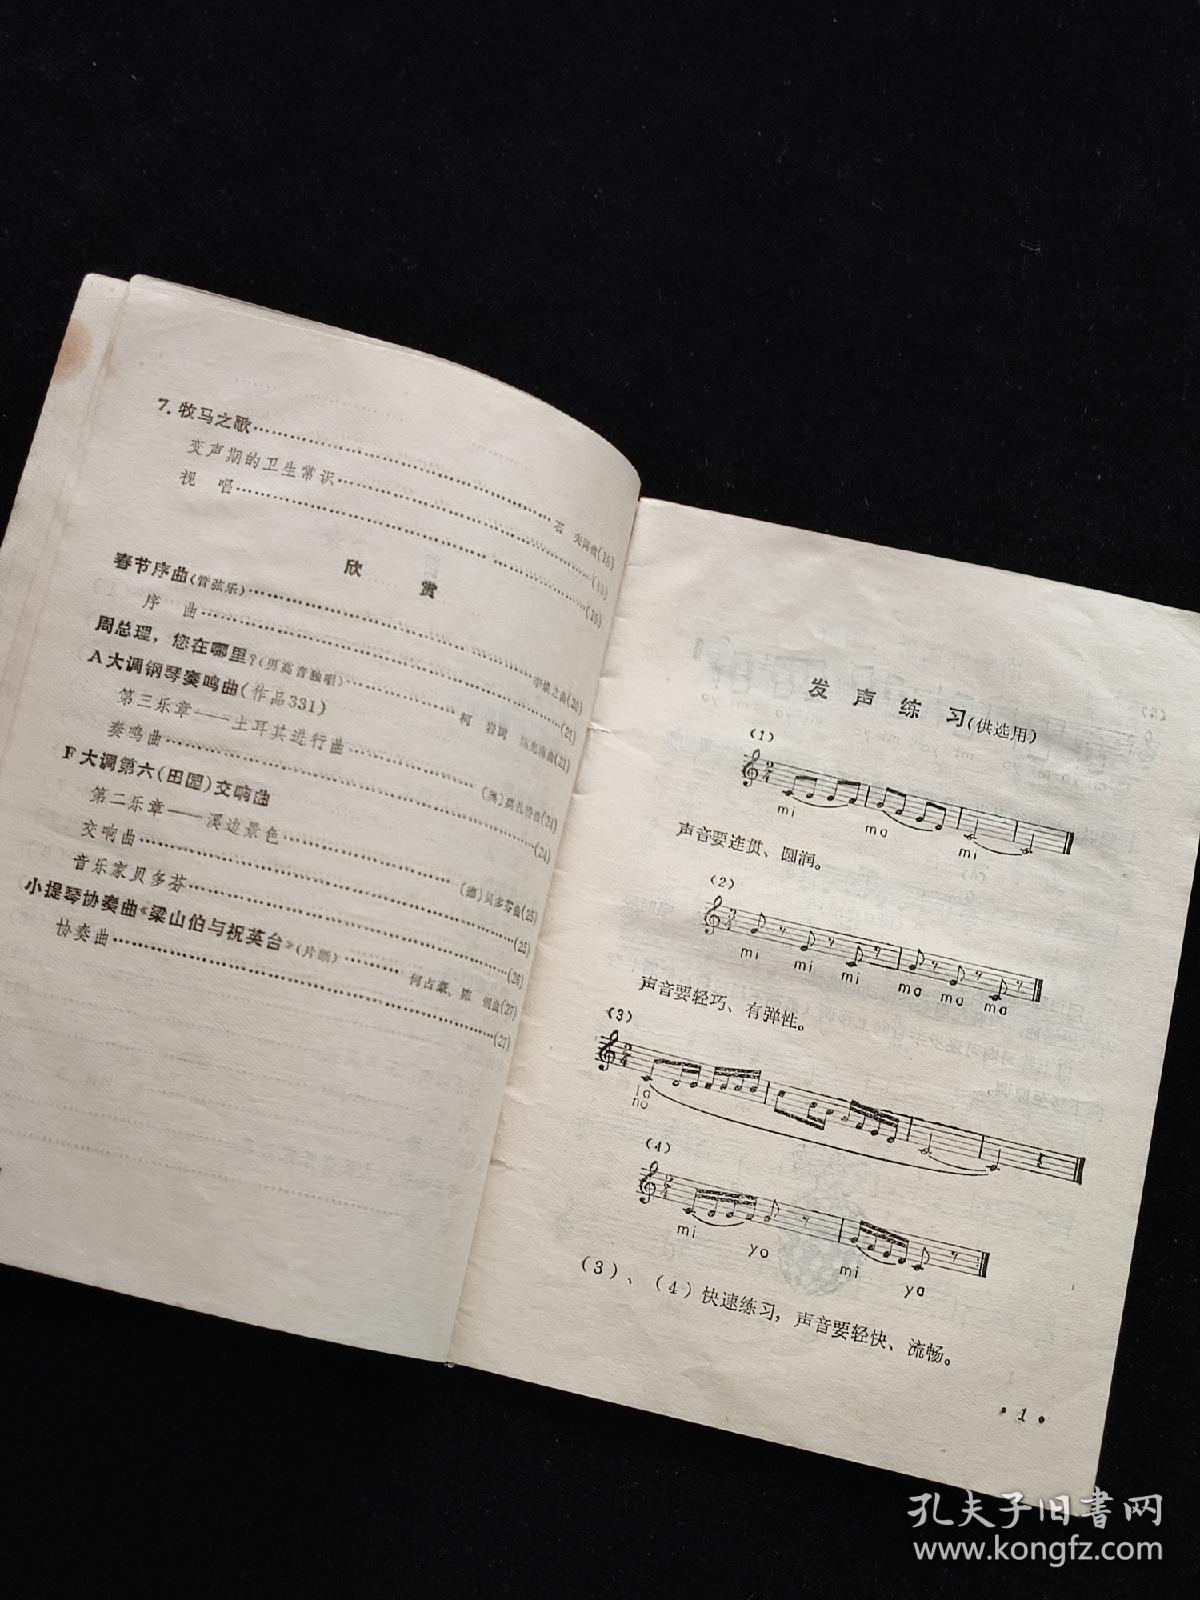 7. 牧马之歌
变声期的卫生常识
视　唱
欣　赏
春节序曲(管弦乐)
序　曲
周总理，您在哪里?(男高音独唱)
A大调钢琴奏鸣曲(作品331)
第三乐章——土耳其进行曲
奏鸣曲 (24)
F大调第六(田园)交响曲
第二乐章——溪边景色 〔德〕贝多芬曲(25)
交响曲 (25)
音乐家贝多芬 (26)
小提琴协奏曲《梁山伯与祝英台》(片断) 何占豪、陈　钢曲(27)
协奏曲 (27)
发声练习(供选用)
(1)
mi ma mi
声音要连贯、圆润。
(2)
mi mi mi ma ma ma
声音要轻巧、有弹性。
(3)
no
(4)
mi yo mi ya
(3)、(4)快速练习，声音要轻快、流畅。
• 1 •
孔夫子旧书网
www.kongfz.com